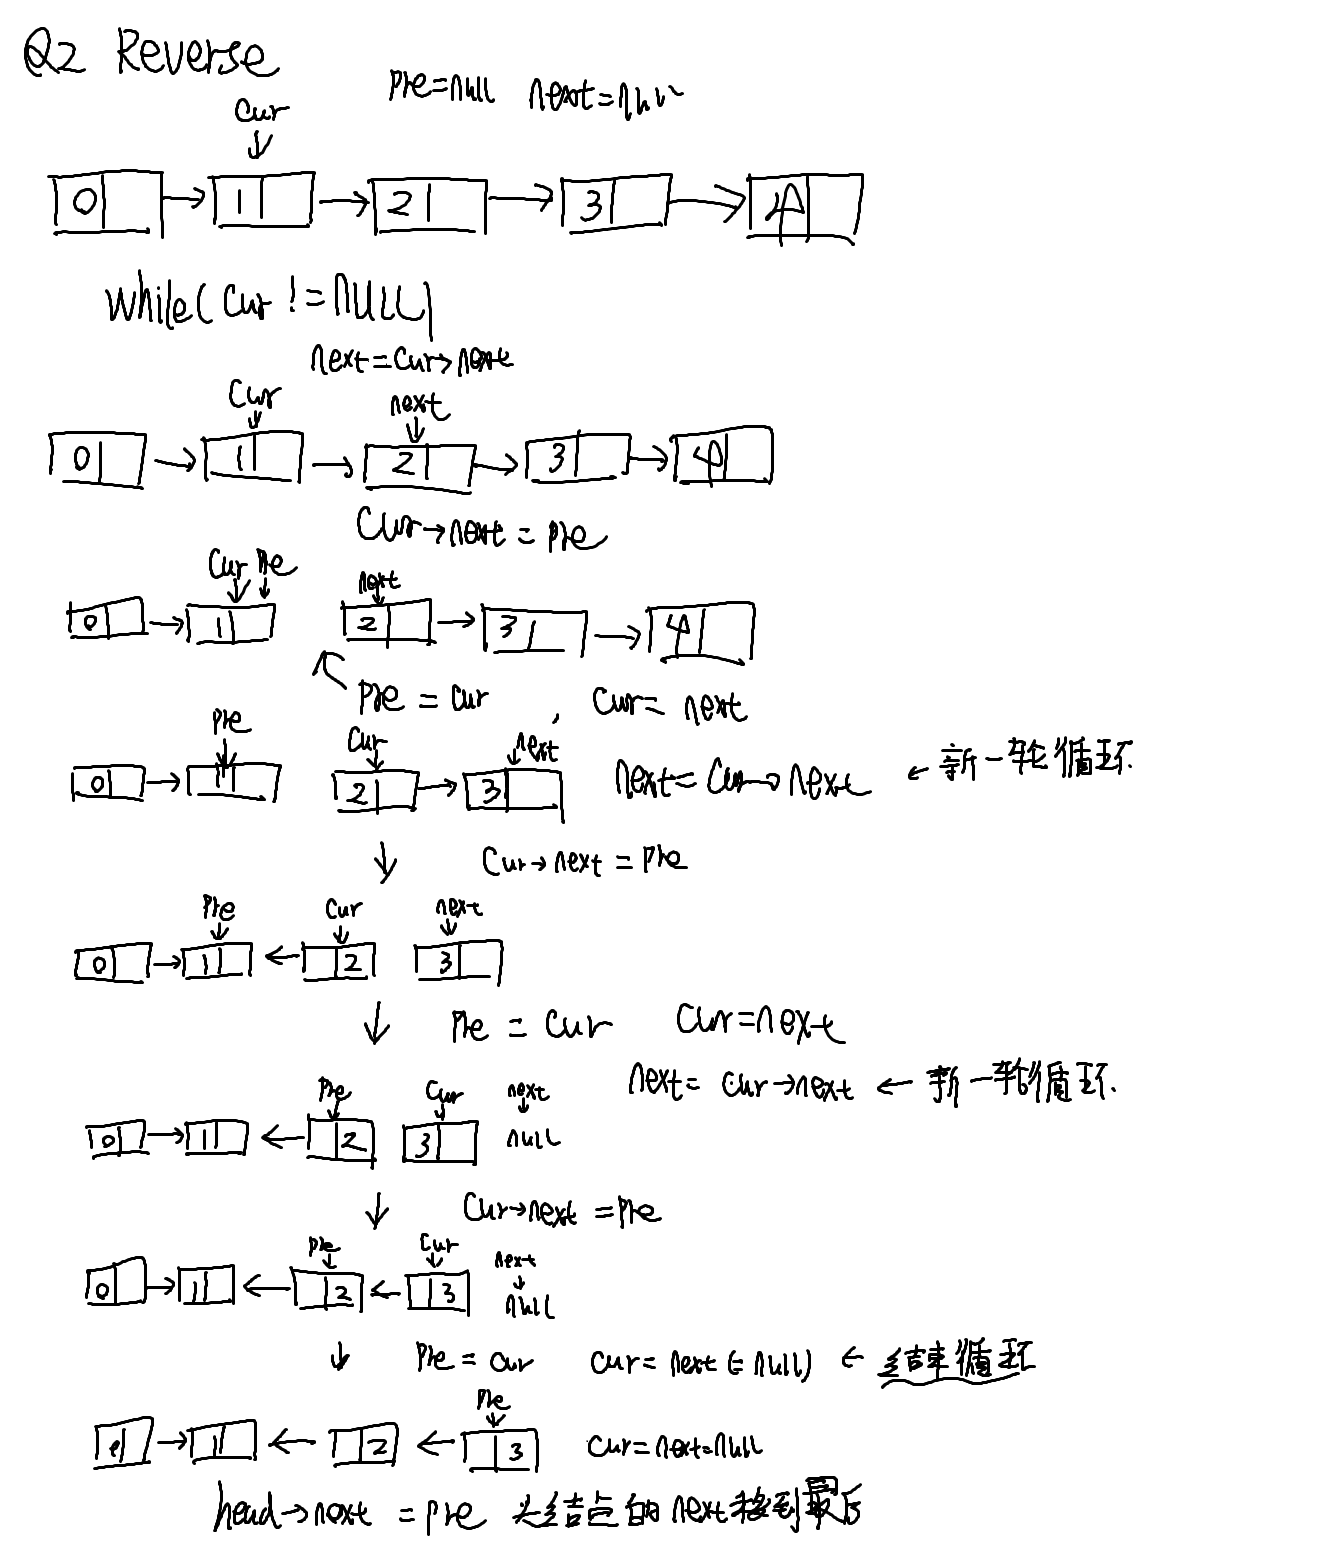 Q2 Reverse
pre=null next=null
cur
0 1 2 3 4
while(cur != NULL)
next=cur→next
cur next
0 1 2 3 4
cur→next = pre
cur pre next
0 1 2 3 4
pre = cur , cur= next
pre cur next
0 1 2 3 next= cur→next ← 新一轮循环
cur→next = pre
pre cur next
0 1 2 3
pre = cur cur=next
next= cur→next ← 新一轮循环.
pre cur next
0 1 2 3 null
cur→next =pre
pre cur next
0 1 2 3 null
pre = cur cur= next (=null) ← 结束循环
pre
0 1 2 3 cur=next=null
head→next = pre 头结点的next移到最后